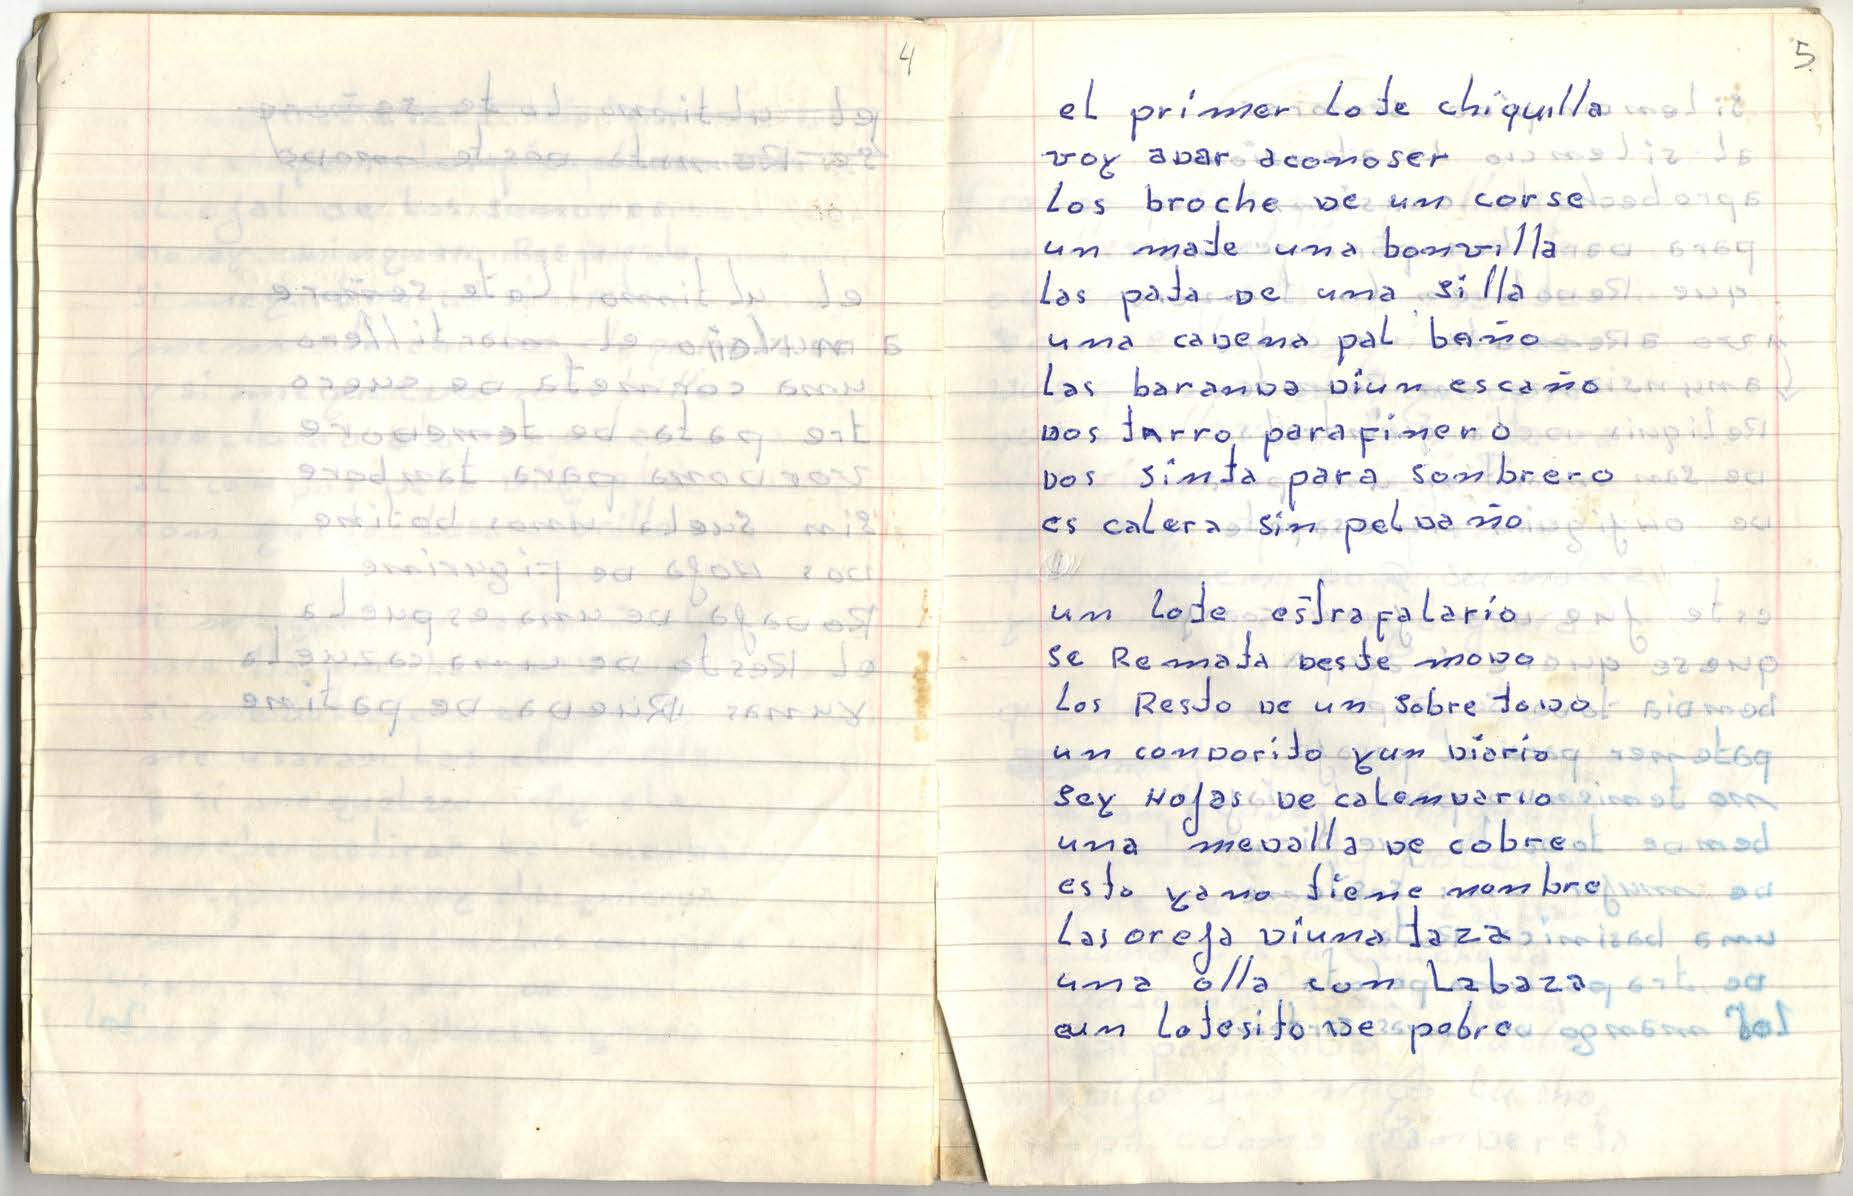 4
5
el primer Lote chiquilla
voy adar aconoser
Los broche de un corse
un mate una bonvilla
Las pata de una silla
una cadena pal baño
Las baranda diun escaño
dos tarro parafinero
dos sinta para sombrero
es calera sin peldaño
un Lote estrafalario
se Remata deste modo
Los Resto de un sobre todo
un condorito yun diario
sey Hojas de calendario
una medalla de cobre
esto yano tiene nombre
Las oreja diuna taza
una olla con Labaza
eun Lotesito de pobre